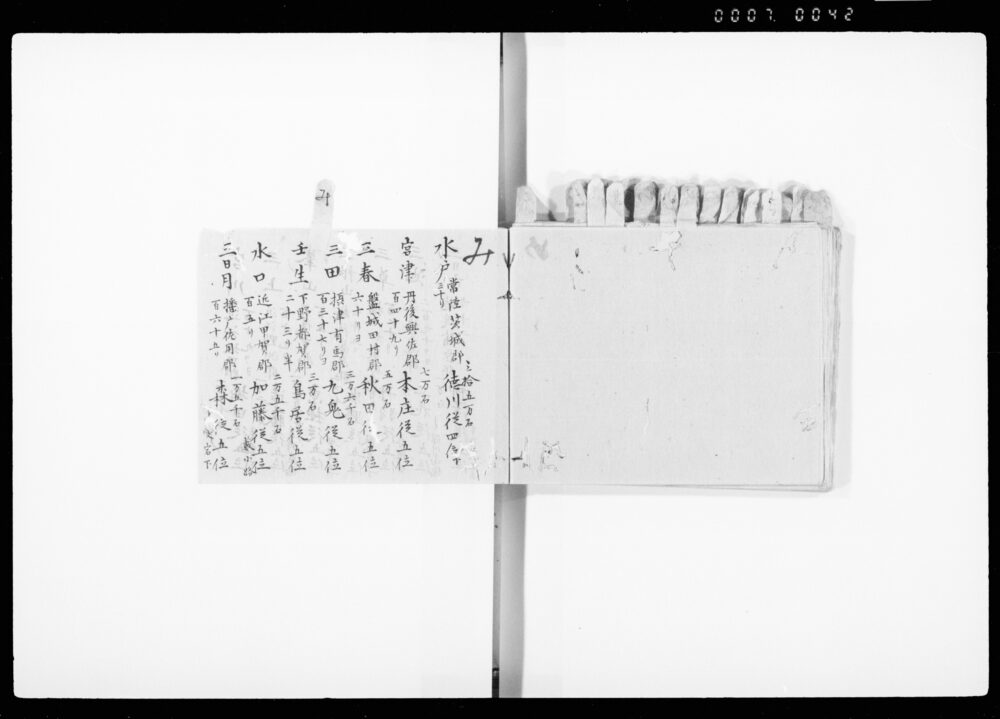 0007 0042
み
み
水戸 常陸茨城郡 三拾五万石 徳川従四位下
三十り
宮津 丹後與佐郡 七万石 本庄従五位
百四十九り
三春 盤城田村郡 五万石 秋田従五位
六十りヨ
三田 摂津有馬郡 三万六千石 九鬼従五位
百三十七りヨ
壬生 下野都賀郡 三万石 鳥居従五位
二十三り半
水口 近江甲賀郡 二万五千石 加藤従五位
百五り
三日月 播戸佐用郡 一万五千石 森従五位
百六十五り